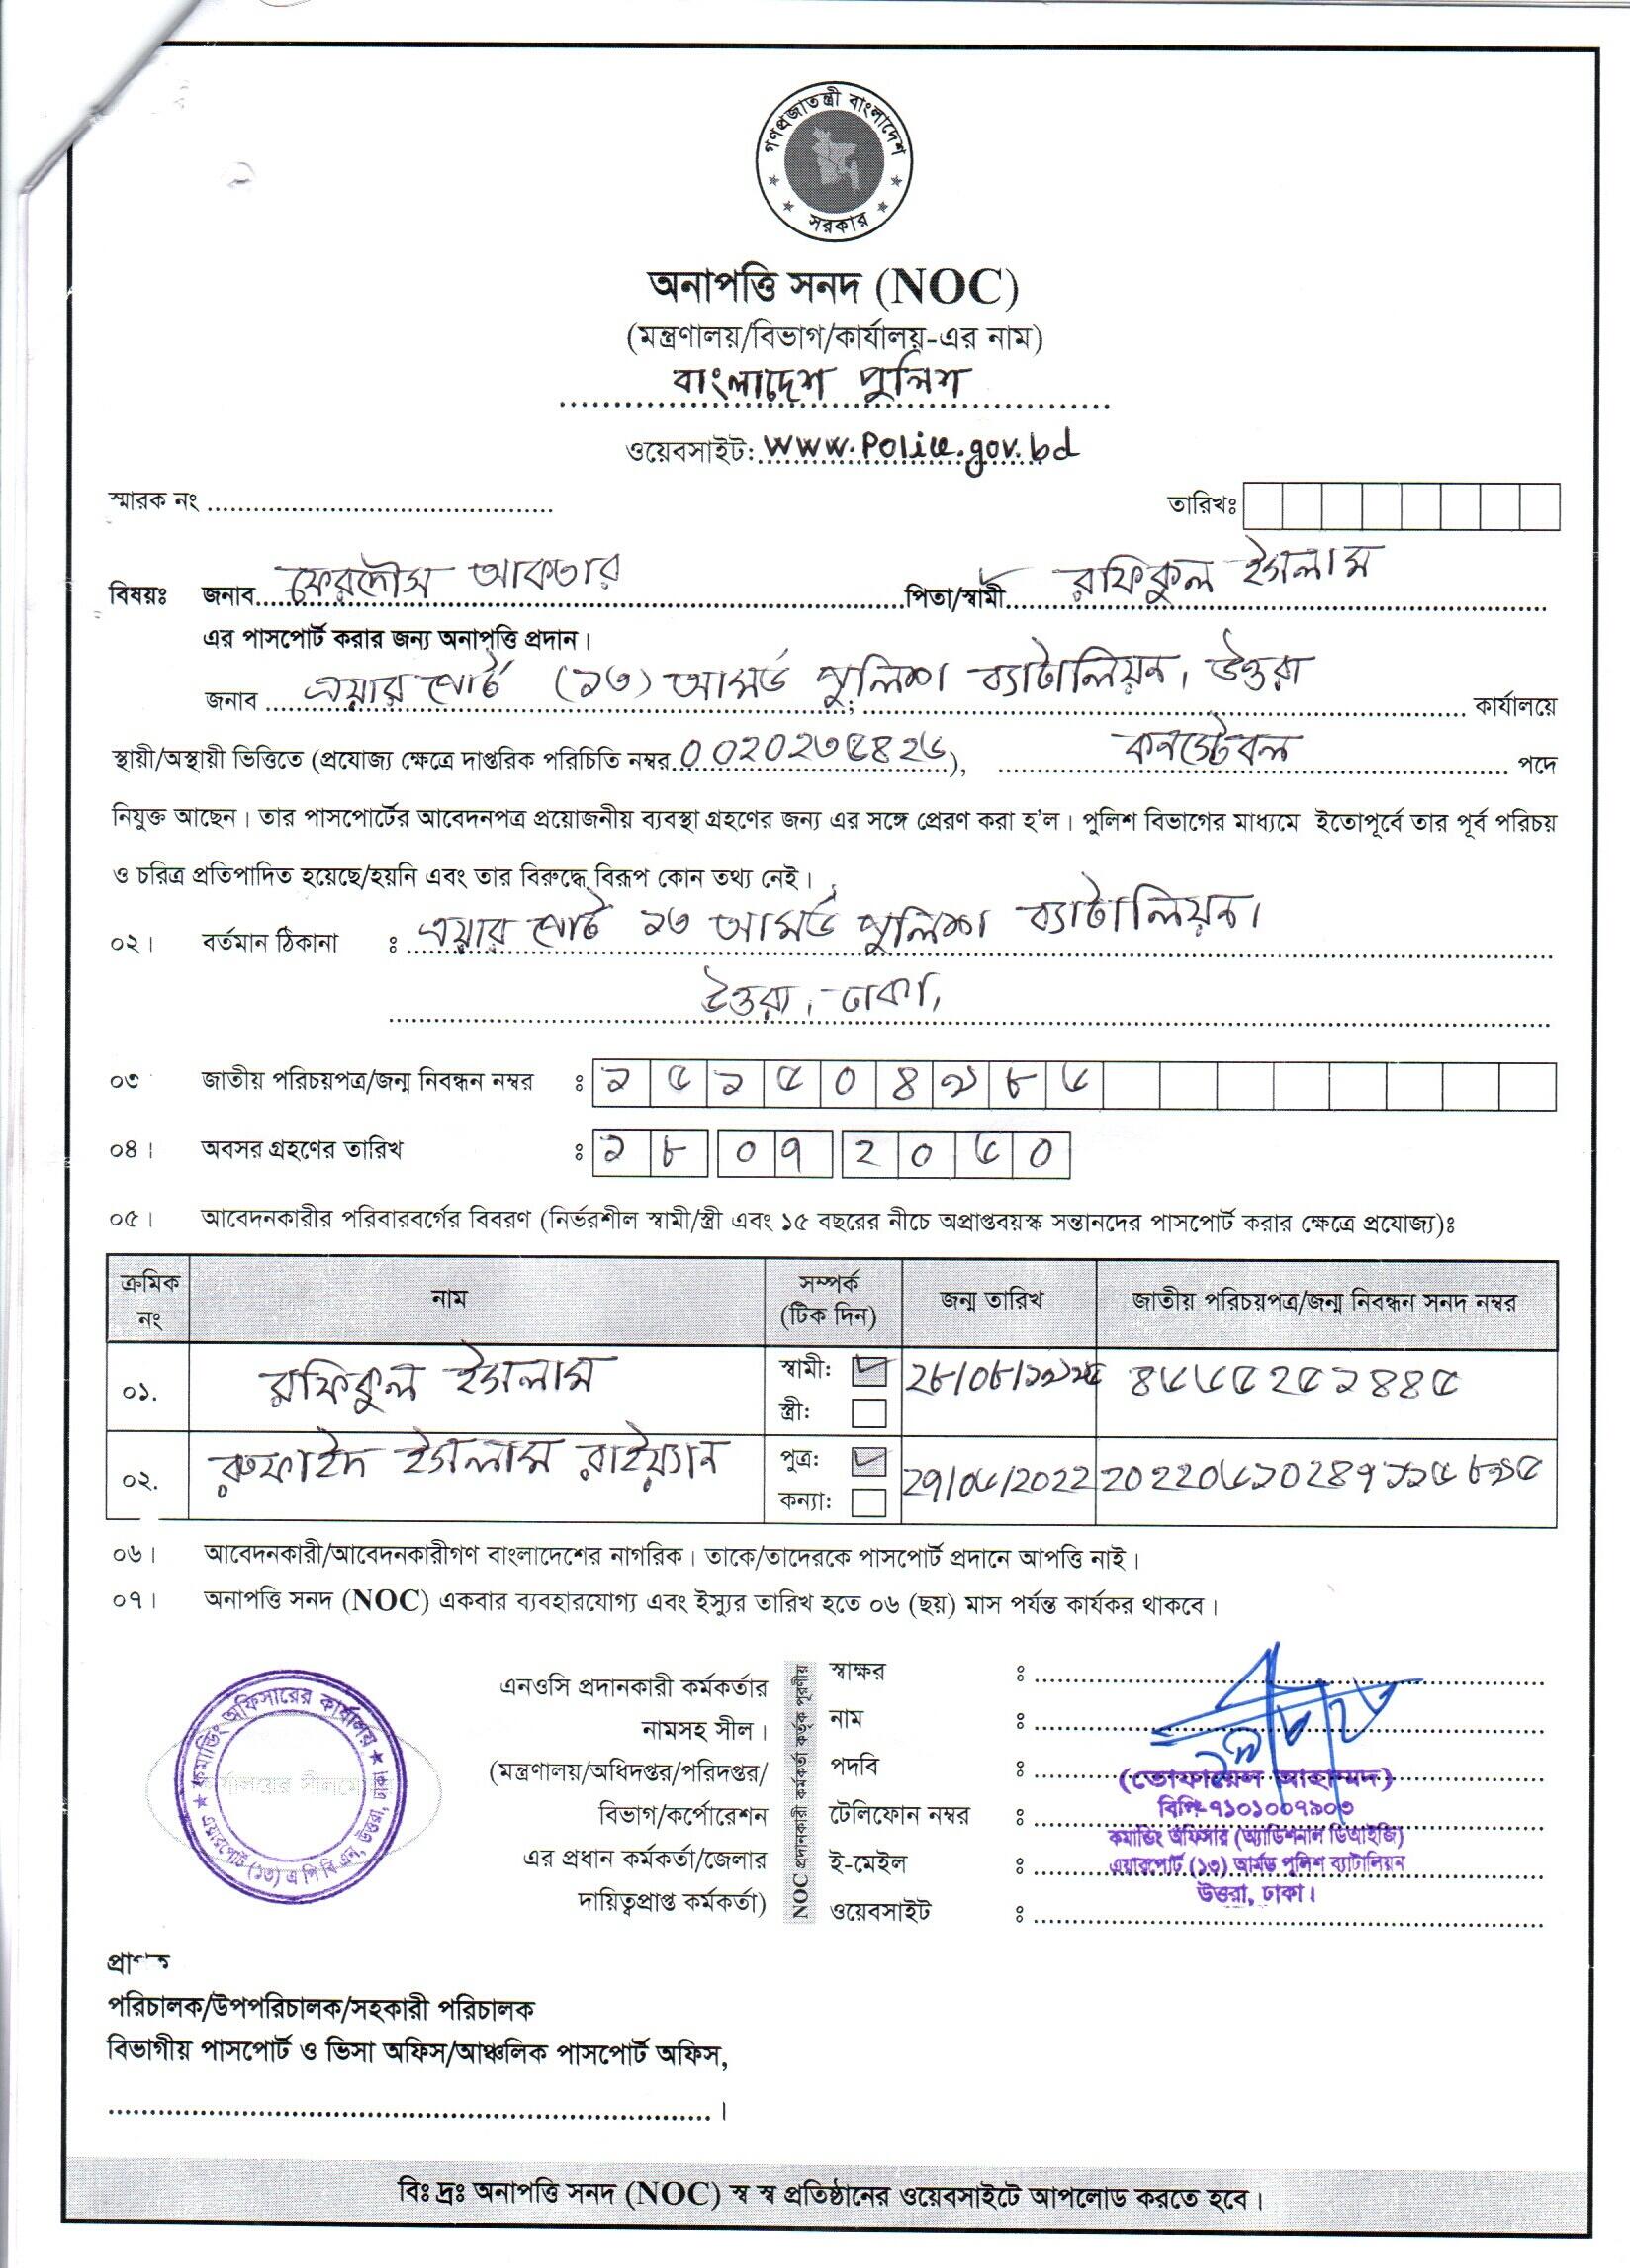 গণপ্রজাতন্ত্রী বাংলাদেশ
সরকার
অনাপত্তি সনদ (NOC)
(মন্ত্রণালয়/বিভাগ/কার্যালয়-এর নাম)
বাংলাদেশ পুলিশ
ওয়েবসাইট: www.police.gov.bd
স্মারক নং
তারিখঃ
বিষয়ঃ জনাব ফেরদৌস আকতার পিতা/স্বামী রফিকুল ইসলাম
এর পাসপোর্ট করার জন্য অনাপত্তি প্রদান।
জনাব এয়ার পোর্ট (১৩) আমর্ড পুলিশ ব্যাটালিয়ন, উত্তরা কার্যালয়ে
স্থায়ী/অস্থায়ী ভিত্তিতে (প্রযোজ্য ক্ষেত্রে দাপ্তরিক পরিচিতি নম্বর ), কনস্টেবল পদে
নিযুক্ত আছেন। তার পাসপোর্টের আবেদনপত্র প্রয়োজনীয় ব্যবস্থা গ্রহণের জন্য এর সঙ্গে প্রেরণ করা হ'ল। পুলিশ বিভাগের মাধ্যমে ইতোপূর্বে তার পূর্ব পরিচয়
ও চরিত্র প্রতিপাদিত হয়েছে/হয়নি এবং তার বিরুদ্ধে বিরূপ কোন তথ্য নেই।
০২। বর্তমান ঠিকানা : এয়ার পোর্ট ১৩ আমর্ড পুলিশ ব্যাটালিয়ন।
উত্তরা, ঢাকা,
০৩ জাতীয় পরিচয়পত্র/জন্ম নিবন্ধন নম্বর :
০৪। অবসর গ্রহণের তারিখ : ১৮ ০৭ ২০৬০
০৫। আবেদনকারীর পরিবারবর্গের বিবরণ (নির্ভরশীল স্বামী/স্ত্রী এবং ১৫ বছরের নীচে অপ্রাপ্তবয়স্ক সন্তানদের পাসপোর্ট করার ক্ষেত্রে প্রযোজ্য)ঃ
ক্রমিক নং নাম সম্পর্ক (টিক দিন) জন্ম তারিখ জাতীয় পরিচয়পত্র/জন্ম নিবন্ধন সনদ নম্বর
০১. রফিকুল ইসলাম স্বামী:
স্ত্রী:
০২. রুফাইদ ইসলাম রাইয়্যান পুত্র:
কন্যা:
০৬। আবেদনকারী/আবেদনকারীগণ বাংলাদেশের নাগরিক। তাকে/তাদেরকে পাসপোর্ট প্রদানে আপত্তি নাই।
০৭। অনাপত্তি সনদ (NOC) একবার ব্যবহারযোগ্য এবং ইস্যুর তারিখ হতে ০৬ (ছয়) মাস পর্যন্ত কার্যকর থাকবে।
কমান্ডিং অফিসারের কার্যালয়
এয়ারপোর্ট (১৩) এ পি বি এন, উত্তরা, ঢাকা
এনওসি প্রদানকারী কর্মকর্তার
নামসহ সীল।
(মন্ত্রণালয়/অধিদপ্তর/পরিদপ্তর/
বিভাগ/কর্পোরেশন
এর প্রধান কর্মকর্তা/জেলার
দায়িত্বপ্রাপ্ত কর্মকর্তা)
NOC প্রদানকারী কর্মকর্তা কর্তৃক পূরণীয়
স্বাক্ষর :
নাম :
পদবি :
টেলিফোন নম্বর :
ই-মেইল :
ওয়েবসাইট :
(তোফায়েল আহাম্মদ)
বিপি-৭১০১০০৭৯০৩
কমান্ডিং অফিসার (অ্যাডিশনাল ডিআইজি)
এয়ারপোর্ট (১৩) আর্মড পুলিশ ব্যাটালিয়ন
উত্তরা, ঢাকা।
পরিচালক/উপপরিচালক/সহকারী পরিচালক
বিভাগীয় পাসপোর্ট ও ভিসা অফিস/আঞ্চলিক পাসপোর্ট অফিস,
বিঃ দ্রঃ অনাপত্তি সনদ (NOC) স্ব স্ব প্রতিষ্ঠানের ওয়েবসাইটে আপলোড করতে হবে।